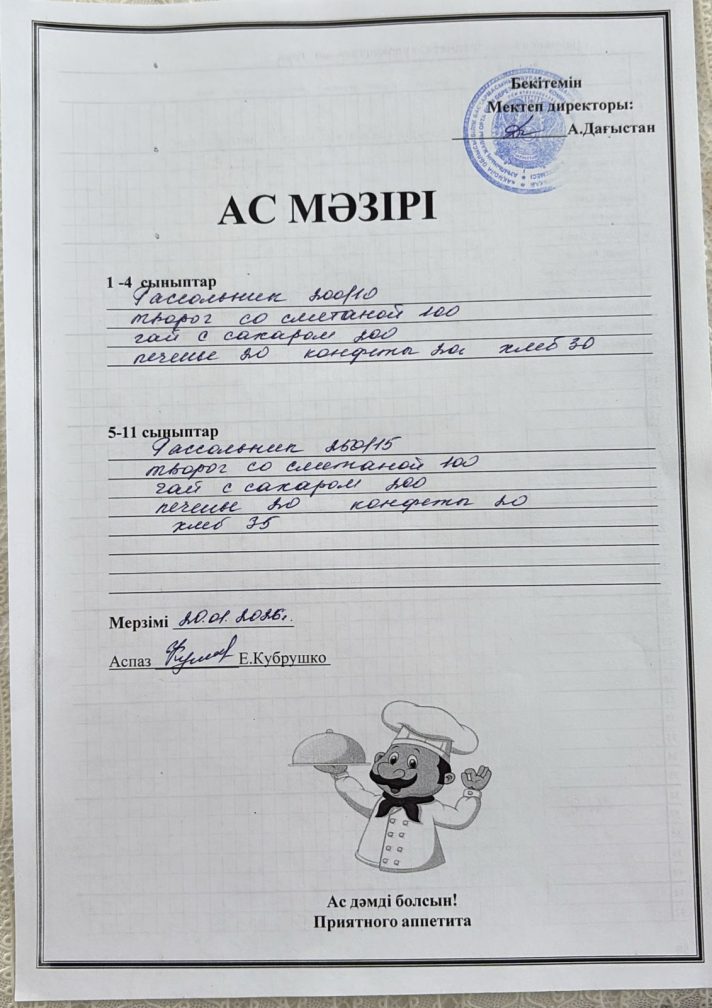 Бекітемін
Мектеп директоры:
А.Дағыстан
АС МӘЗІРІ
1 -4 сыныптар
Рассольник 200/10
творог со сметаной 100
чай с сахаром 200
печенье 20 конфеты 20 хлеб 30
5-11 сыныптар
Рассольник 250/15
творог со сметаной 100
чай с сахаром 200
печенье 20 конфеты 20
хлеб 35
Мерзімі 20.01.2026г.
Аспаз Е.Кубрушко
Ас дәмді болсын!
Приятного аппетита